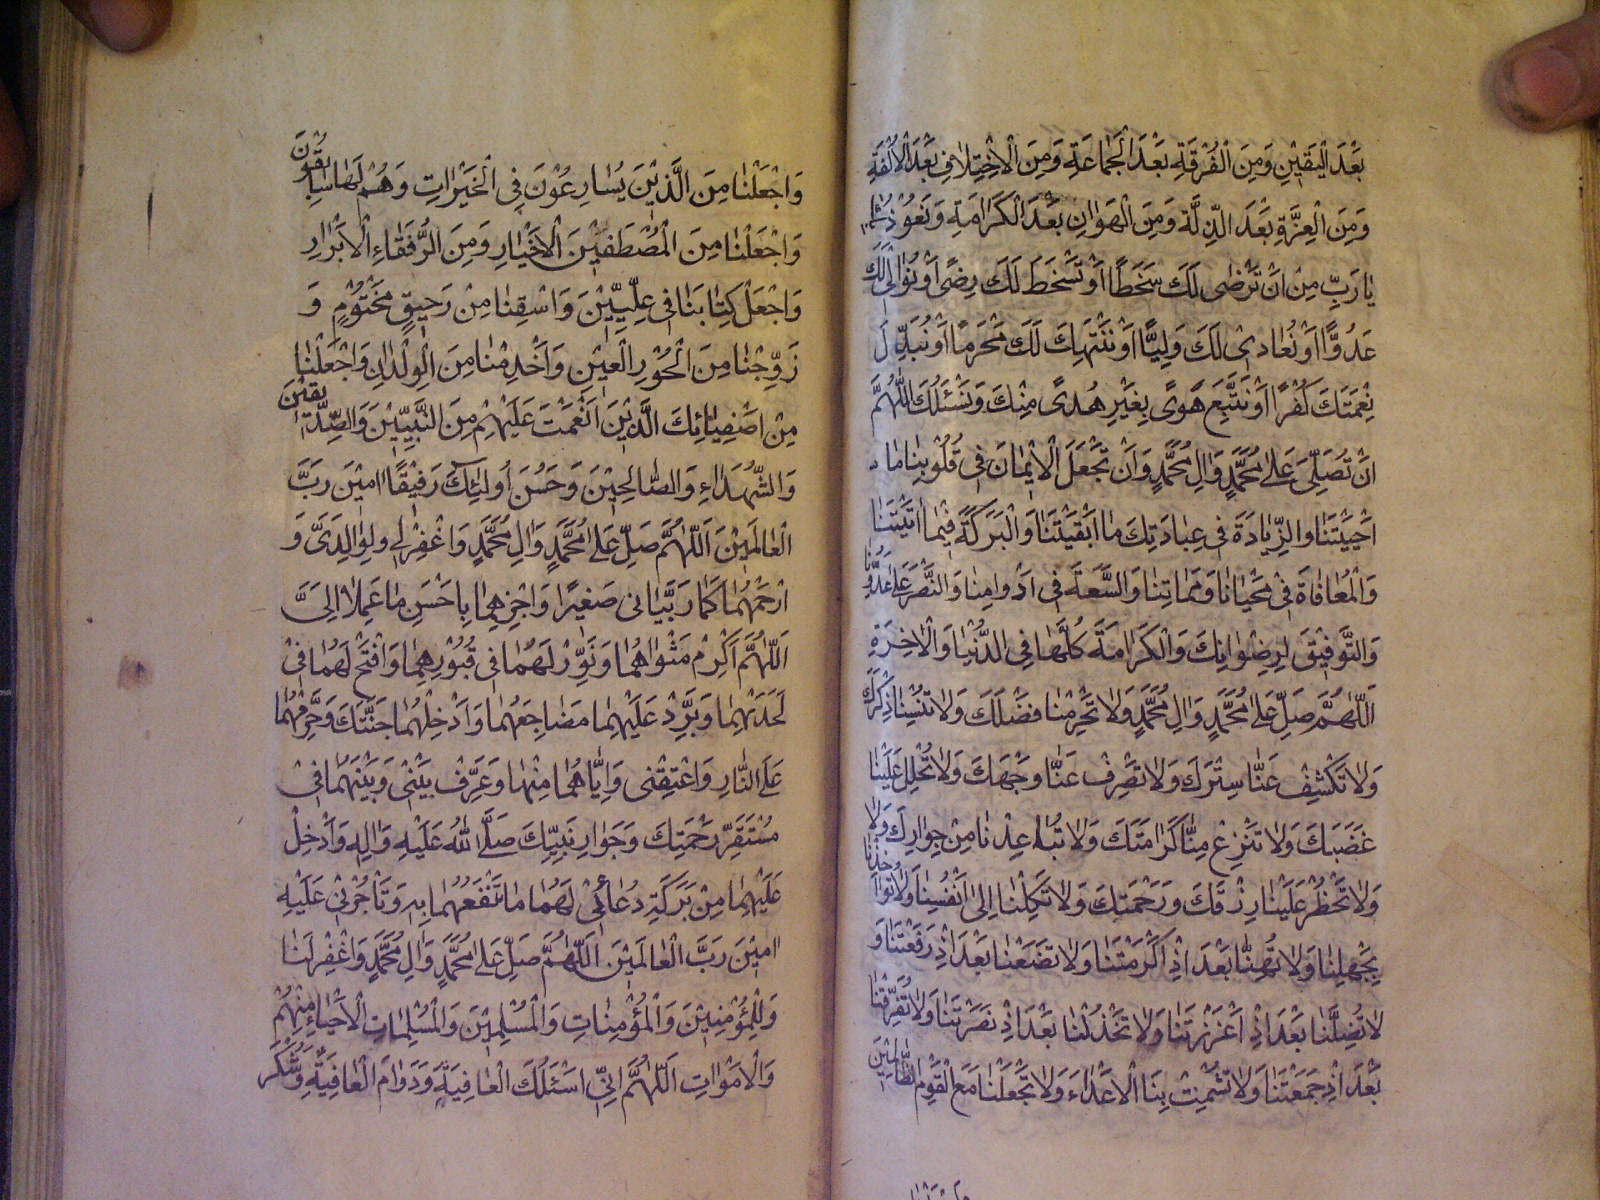 بَعْدَ الْيَقينِ وَمِنَ الْفُرْقَةِ بَعْدَ الْجَمٰاعَةِ وَمِنَ الْاِخْتِلٰافِ بَعْدَ الْاُلْفَةِ
وَمِنَ الْعِزَّةِ بَعْدَ الذِّلَّة وَمِنَ الْهَوٰانِ بَعْدَ الْكَرٰامَةِ وَنَعُوْذُ
يٰا رَبِّ مِنْ اَنْ نَرْضٰى لَكَ سَخَطًا اَوْ نَسْخَطَ لَكَ رِضًى اَوْ نُوٰالِىَ لَكَ
عَدُوًّا اَوْ نُعٰادِىَ لَكَ وَلِيًّا اَوْ نَنْتَهِكَ لَكَ مَحْرَمًا اَوْ نُبَدِّلَ
نِعْمَتَكَ كُفْرًا اَوْ نَتَّبِعَ هَوًى بِغَيْرِ هُدًى مِنْكَ وَنَسْئَلُكَ اللّٰهُمَّ
اَنْ تُصَلِّىَ عَلىٰ مُحَمَّدٍ وَاٰلِ مُحَمَّدٍ وَاَنْ تَجْعَلَ الْاٖيْمٰانَ فى قُلُوْبِنٰا مٰا
اَحْيَيْتَنٰا وَالزِّيٰادَةَ فى عِبٰادَتِكَ مٰا اَبْقَيْتَنٰا وَالْبَرَكَةَ فيْمٰا اٰتَيْتَنٰا
وَالْمُعٰافٰاةَ فىْ مَحْيٰانٰا وَمَمٰاتِنٰا وَالسَّعَةَ فى اَدْوٰامِنٰا وَالنَّصْرَ عَلىٰ عَدُوِّنٰا
وَالتَّوْفيْقَ لِرِضْوٰانِكَ وَالْكَرٰامَةَ كُلَّهٰا فِى الدُّنْيٰا وَالْاٰخِرَةِ
اَللّٰهُمَّ صَلِّ عَلىٰ مُحَمَّدٍ وَاٰلِ مُحَمَّدٍ وَلٰا تَحْرِمْنٰا فَضْلَكَ وَلٰا تُنْسِنٰا ذِكْرَكَ
وَلٰا تَكْشِفْ عَنّٰا سِتْرَكَ وَلٰا تَصْرِفْ عَنّٰا وَجْهَكَ وَلٰا تُحْلِلْ عَلَيْنٰا
غَضَبَكَ وَلٰا تَنْزِعْ مِنّٰا كَرٰامَتَكَ وَلٰا تُبٰاعِدْنٰا مِنْ جِوٰارِكَ وَلٰا
وَلٰا تَحْظُرْ عَلَيْنٰا رِزْقَكَ وَرَحْمَتَكَ وَلٰا تَكِلْنٰا اِلىٰ اَنْفُسِنٰا وَلٰا تُوٰاخِذْنٰا
بِجَهْلِنٰا وَلٰا تُهِنّٰا بَعْدَ اِذْ اَكْرَمْتَنٰا وَلٰا تَضَعْنٰا بَعْدَ اِذْ رَفَعْتَنٰا وَ
لٰا تُضِلَّنٰا بَعْدَ اِذْ اَعْزَزْتَنٰا وَلٰا تَخْذُلْنٰا بَعْدَ اِذْ نَصَرْتَنٰا وَلٰا تُفَرِّقْنٰا
بَعْدَ اِذْ جَمَعْتَنٰا وَلٰا تُشْمِتْ بِنَا الْاَعْدٰاءَ وَلٰا تَجْعَلْنٰا مَعَ الْقَوْمِ الظّٰالِمِيْنَ
وَاجْعَلْنٰا مِنَ الَّذيْنَ يُسٰارِعُوْنَ فِى الْخَيْرٰاتِ وَهُمْ لَهٰا سٰابِقُوْنَ
وَاجْعَلْنٰا مِنَ الْمُصْطَفَيْنَ الْاَخْيٰارِ وَمِنَ الرُّفَقٰاءِ الْاَبْرٰارِ
وَاجْعَلْ كِتٰابَنٰا فى عِلِّيِّيْنَ وَاسْقِنٰا مِنْ رَحيْقٍ مَخْتُوْمٍ وَ
زَوِّجْنٰا مِنَ الْحُوْرِ الْعيْنِ وَاَخْدِمْنٰا مِنَ الْوِلْدٰانِ وَاجْعَلْنٰا
مِنْ اَصْفِيٰائِكَ الَّذيْنَ اَنْعَمْتَ عَلَيْهِمْ مِنَ النَّبِيّيْنَ وَالصِّدّيقيْنَ
وَالشُّهَدٰاءِ وَالصّٰالِحيْنَ وَحَسُنَ اُولٰئِكَ رَفيْقًا اٰميْنَ رَبَّ
الْعٰالَميْنَ اَللّٰهُمَّ صَلِّ عَلىٰ مُحَمَّدٍ وَاٰلِ مُحَمَّدٍ وَاغْفِرْلى وَلِوٰالِدَىَّ وَ
ارْحَمْهُمٰا كَمٰا رَبَّيٰانى صَغيْرًا وَاجْزِهِمٰا بِاَحْسَنِ مٰا عَمِلٰا اِلَىَّ
اَللّٰهُمَّ اَكْرِمْ مَثْوٰاهُمٰا وَنَوِّرْ لَهُمٰا فى قُبُوْرِهِمٰا وَافْتَحْ لَهُمٰا فىْ
لَحْدَيْهِمٰا وَبَرِّدْ عَلَيْهِمٰا مَضٰاجِعَهُمٰا وَاَدْخِلْهُمٰا جَنَّتَكَ وَحَرِّمْهُمٰا
عَلَى النّٰارِ وَاعْتِقْنى وَاِيّٰاهُمٰا مِنْهٰا وَعَرِّفْ بَيْنىْ وَبَيْنَهُمٰا فىْ
مُسْتَقَرِّ رَحْمَتِكَ وَجَوٰارِ نَبِيِّكَ صَلَّى اللّٰهُ عَلَيْهِ وَاٰلِهِ وَاَدْخِلْ
عَلَيْهِمٰا مِنْ بَرَكَةِ دُعٰائىْ لَهُمٰا مٰا تَنْفَعُهُمٰا بِهِ وَتَاْجُرُنىْ عَلَيْهِ
اٰميْنَ رَبَّ الْعٰالَميْنَ اَللّٰهُمَّ صَلِّ عَلىٰ مُحَمَّدٍ وَاٰلِ مُحَمَّدٍ وَاغْفِرْ لَنٰا
وَلِلْمُؤْمِنيْنَ وَالْمُؤْمِنٰاتِ وَالْمُسْلِميْنَ وَالْمُسْلِمٰاتِ الْاَحْيٰاءِ مِنْهُمْ
وَالْاَمْوٰاتِ اَللّٰهُمَّ اِنّى اَسْئَلُكَ الْعٰافِيَةَ وَدَوٰامَ الْعٰافِيَةِ وَشُكْرَ